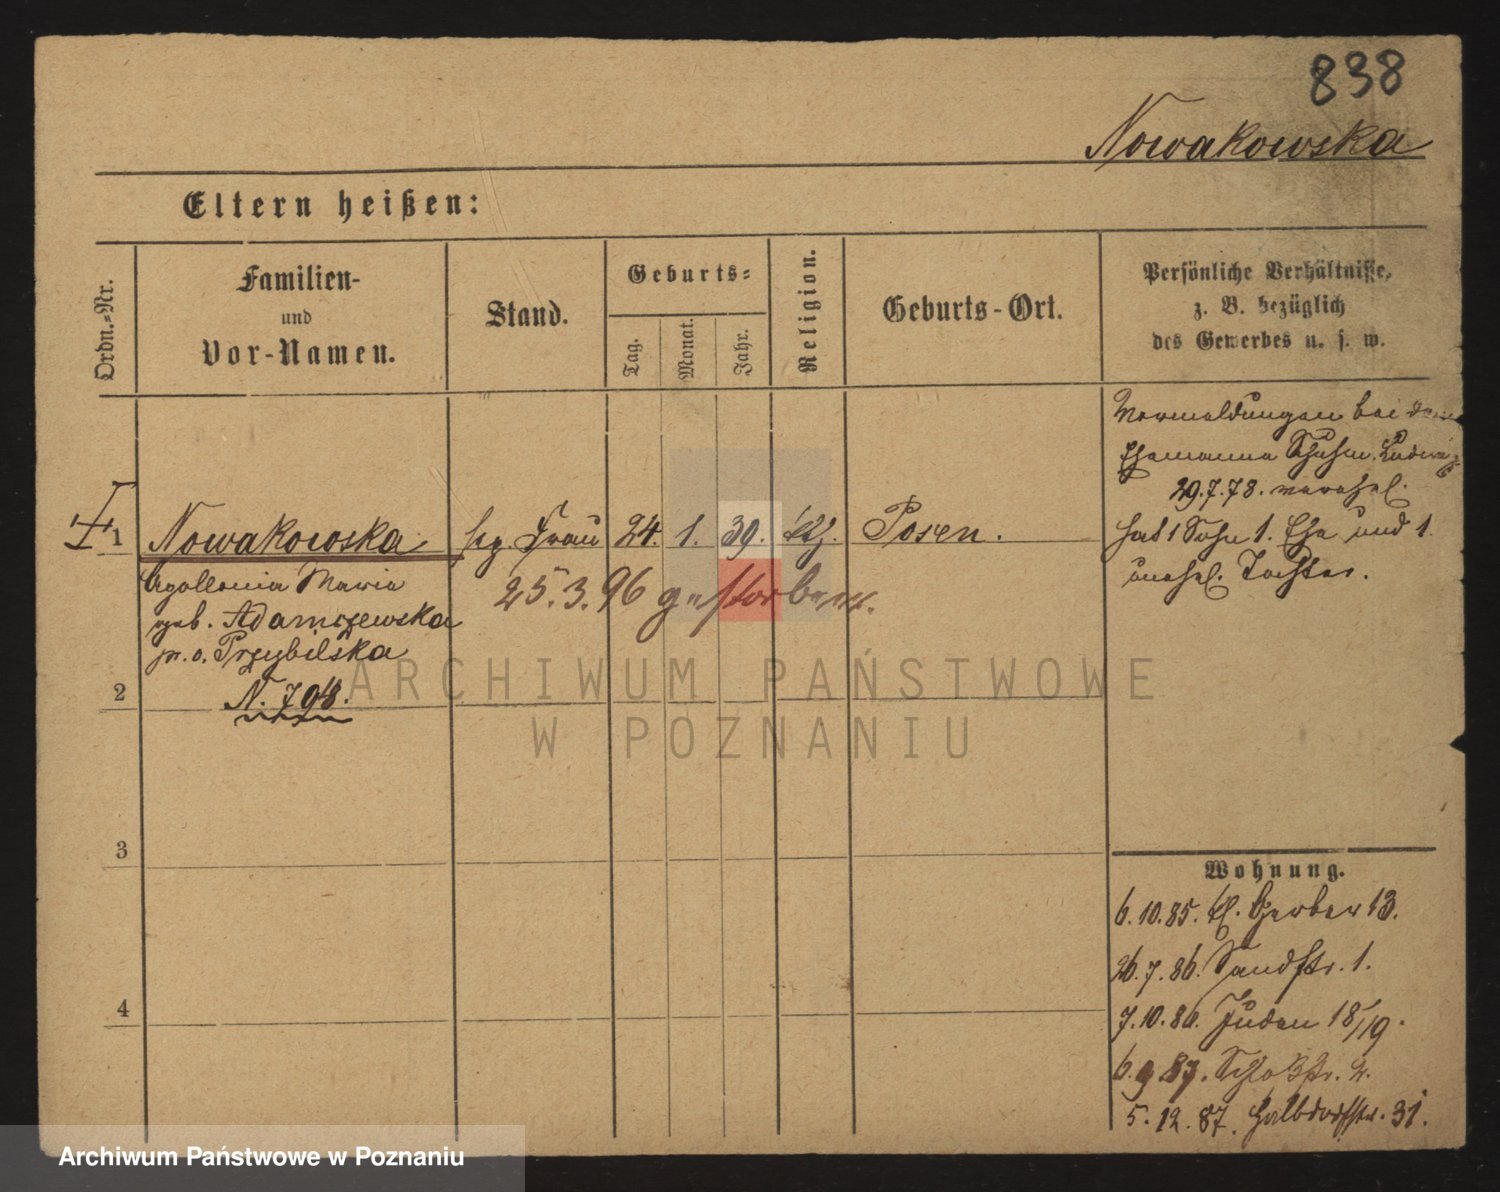 838
Nowakowska
Eltern heißen:
Ordn.-Nr.
Familien-
und
Vor-Namen.
Stand.
Geburts-
Tag.
Monat.
Jahr.
Religion.
Geburts-Ort.
Persönliche Verhältniße,
z. B. bezüglich
des Gewerbes u. s. w.
Vormeldungen bei dem
Ehemanne Schuhm. Ludwig
29.7.78. verehel.
1 Nowakowska Frau 24. 1. 39. kth. Posen.
hat 1 Sohn 1. Ehe und 1.
unehel. Tochter.
Apollonia Maria
25.3.96 gestorben.
geb. Adamczewska
Przybilska
2 N. 798.
3
4
Wohnung.
6.10.85. kl. Gerber 13.
26.7.86. Sandstr. 1.
7.10.86. Juden 18/19.
6.9.87. Schloßstr. 2.
5.12.87. Halbdorfstr. 31.
ARCHIWUM PAŃSTWOWE
W POZNANIU
Archiwum Państwowe w Poznaniu